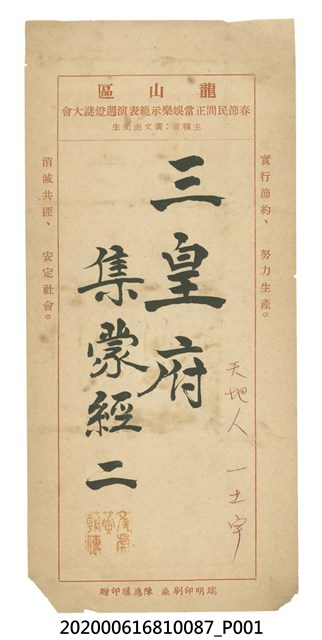 龍山區
春節民間正當娛樂示範表演週燈謎大會
主稿者：黃文虎先生
實行節約、努力生產。
三皇府
集蒙經二
天地人 一士宇
消滅共匪、安定社會。
瑞明印刷廠 陳應璸印贈
202000616810087_P001